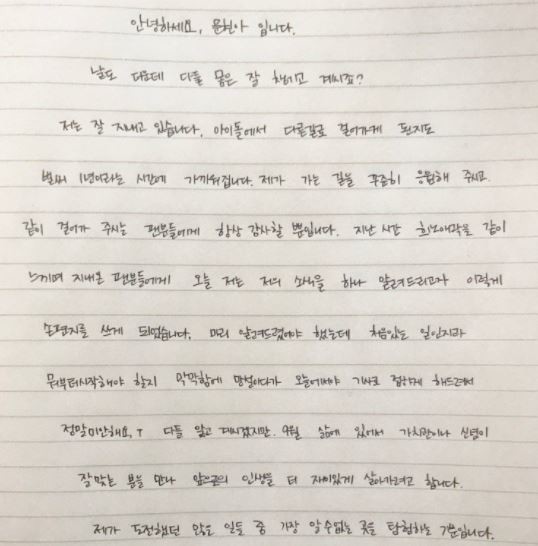 안녕하세요, 문현아 입니다.
날도 더운데 다들 몸은 잘 챙기고 계시죠?
저는 잘 지내고 있습니다, 아이돌에서 다른길로 걸어가게 된지도
벌써 1년이라는 시간에 가까워집니다. 제가 가는 길을 꾸준히 응원해 주시고
같이 걸어가 주시는 팬분들에게 항상 감사할 뿐입니다. 지난 시간 희노애락을 같이
느끼며 지내온 팬분들에게 오늘 저는 저의 소식을 하나 알려드리고자 이렇게
손편지를 쓰게 되었습니다, 미리 알려드렸어야 했는데 처음있는 일인지라
뭐부터시작해야 할지 막막함에 망설이다가 오늘에서야 기사로 접하게 해드려서
정말미안해요,ㅜ 다들 알고 계시겠지만. 9월 삶에 있어서 가치관이나 신념이
잘맞는 분을 만나 앞으로의 인생을 더 재미있게 살아가려고 합니다.
제가 도전했던 많은 일들 중 가장 알수없는 곳을 탐험하는 기분입니다.